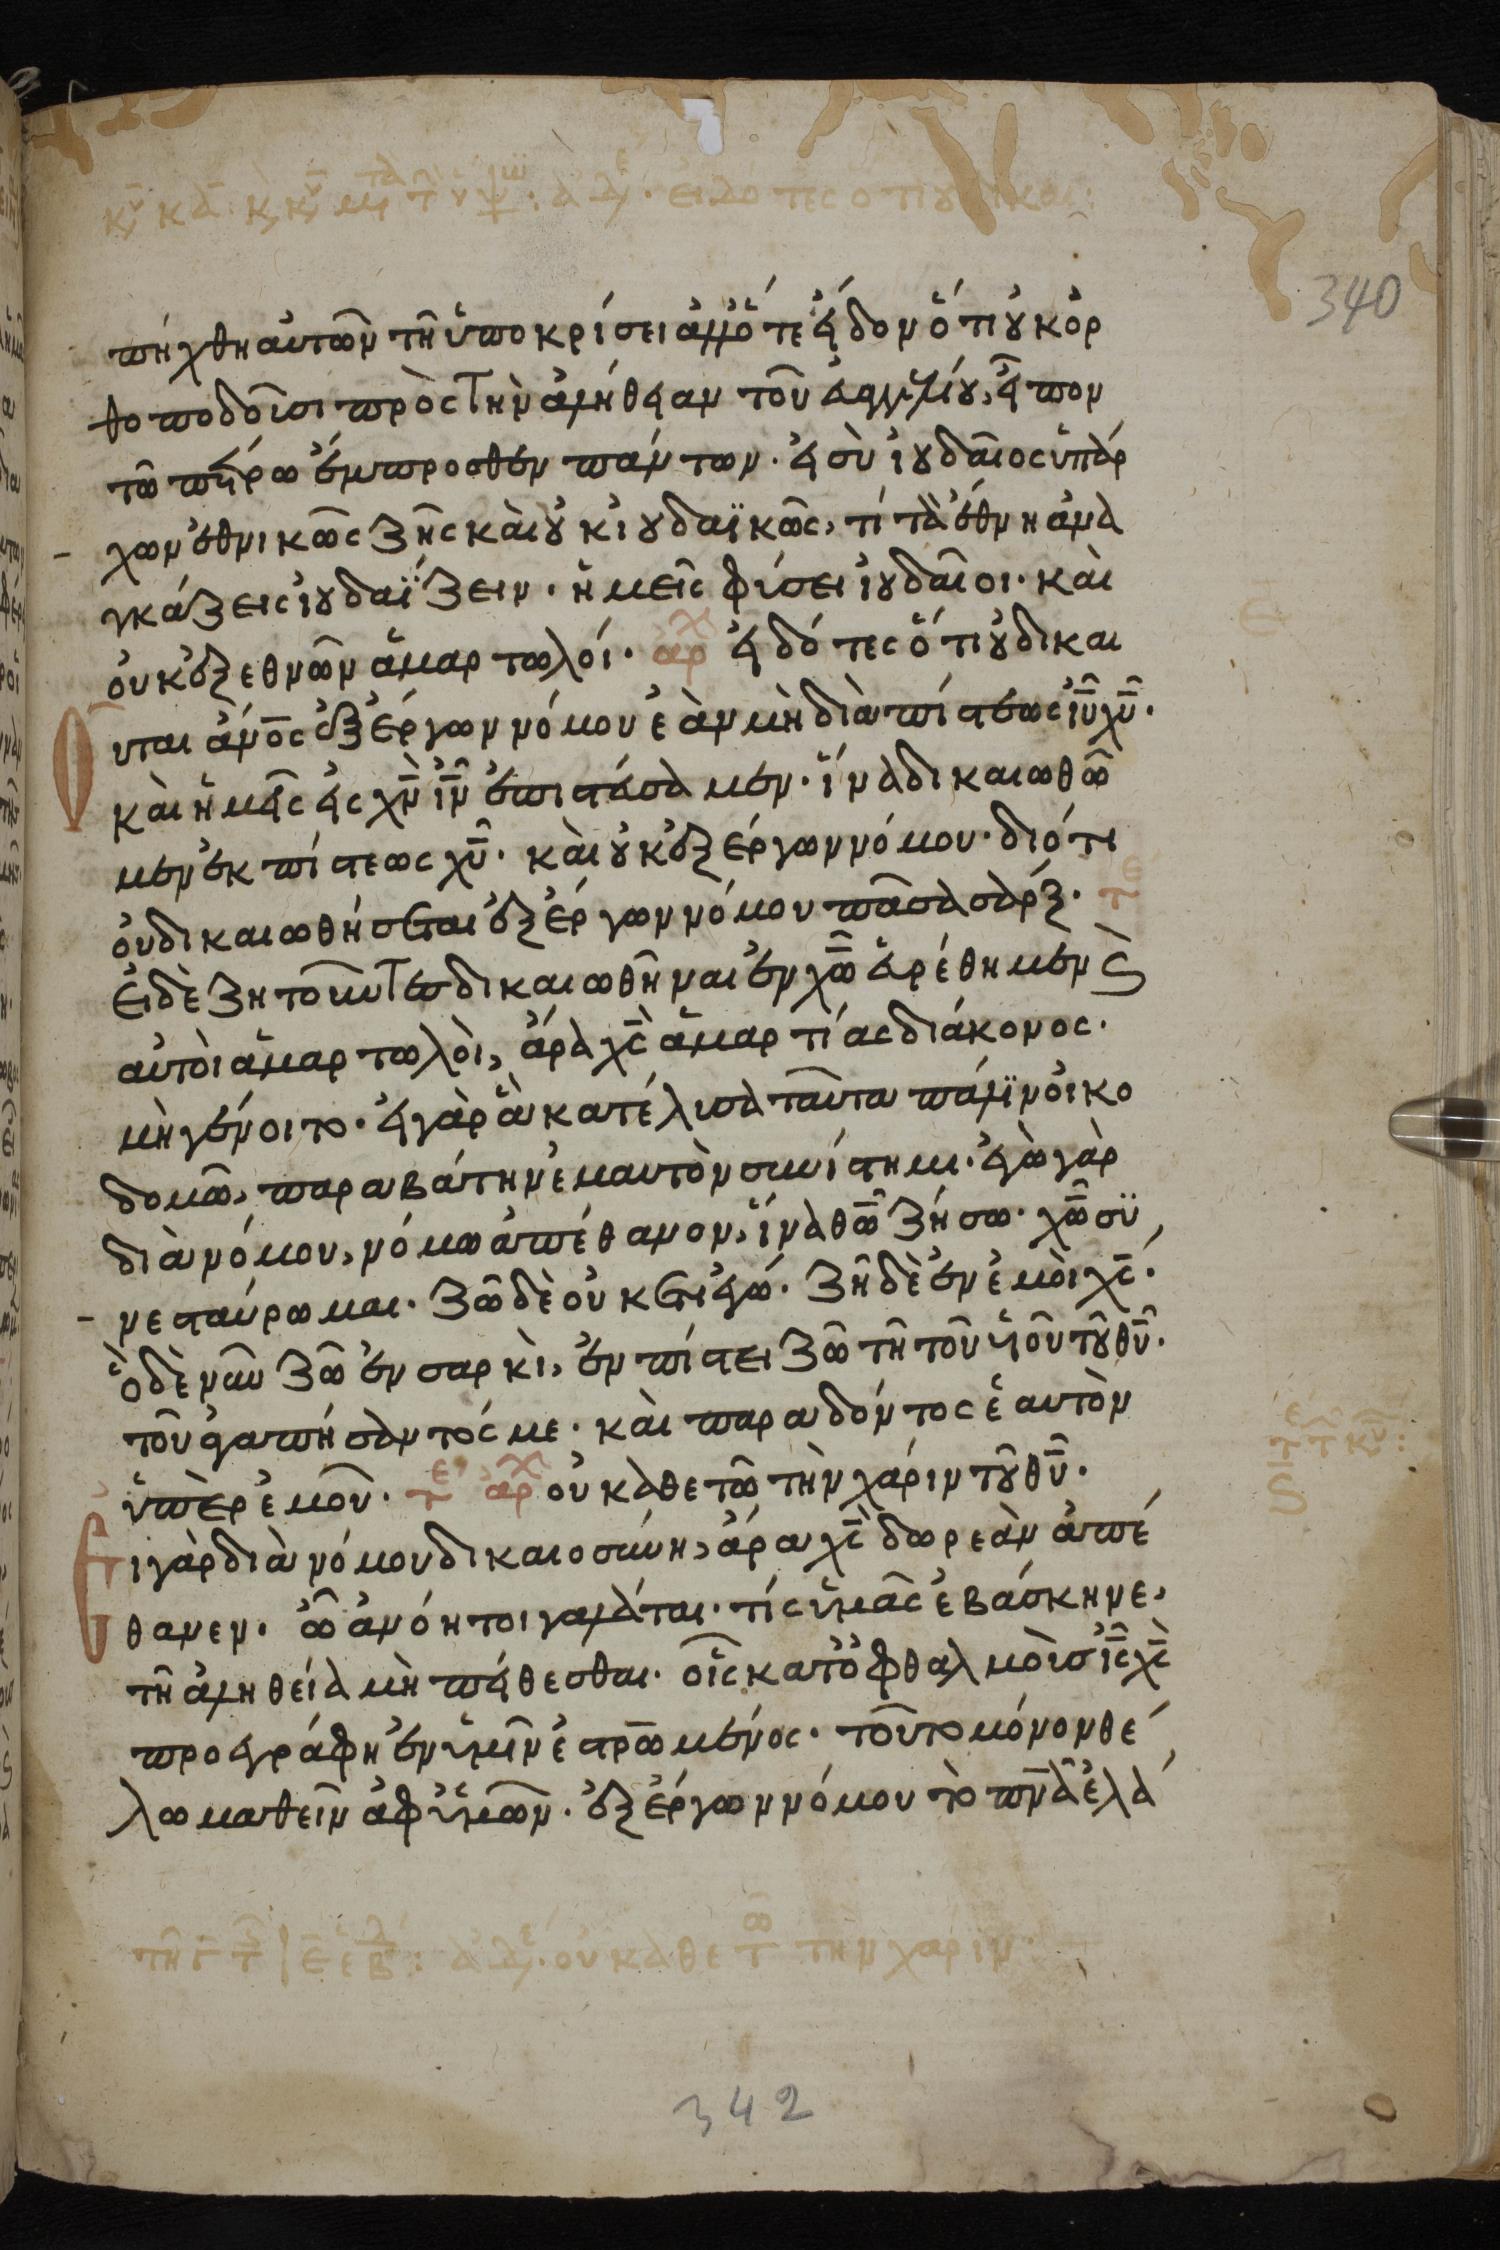 κυ κδ κ κυ μτ τα τ υ ψ ιω : ἀδε · εἰδότες ὅτι οὐ δικαι
340
πήχθη αὐτῶν τῆ ὑποκρίσει ἀλλ' ὅτε εἶδον ὅτι οὐκ ὀρ
θοποδοῦσι πρὸς τὴν ἀλήθειαν τοῦ εὐαγγελίου, εἶπον
τῶ πέτρω ἔμπροσθεν πάντων · εἰ σὺ ἰουδαῖος ὑπάρ
χων ἐθνικῶς ζῆς καὶ οὐκ ἰουδαϊκῶς, τί τὰ ἔθνη ἀνα
γκάζεις ἰουδαΐζειν · ἡμεῖς φύσει ἰουδαῖοι · καὶ
οὐκ ἐξ ἐθνῶν ἁμαρτωλοί · ἀρχ εἰδότες ὅτι οὐ δικαι
οῦται ἄνος ἐξ ἔργων νόμου ἐὰν μὴ διὰ πίστεως ἰυ χυ ·
καὶ ἡμεῖς εἰς χν ἰν ἐπιστεύσαμεν · ἵνα δικαιωθῶ
μεν ἐκ πίστεως χυ · καὶ οὐκ ἐξ ἔργων νόμου · διότι
οὐ δικαιωθήσεται ἐξ ἔργων νόμου πᾶσα σάρξ · τε
εἰ δὲ ζητοῦντες δικαιωθῆναι ἐν χω εὑρέθημεν καὶ
αὐτοὶ ἁμαρτωλοὶ, ἄρα χς ἁμαρτίας διάκονος ·
μὴ γένοιτο · εἰ γὰρ ἃ κατέλυσα ταῦτα πάλιν οἰκο
δομῶ, παραβάτην ἐμαυτὸν συνίστημι · ἐγὼ γὰρ
διὰ νόμου, νόμω ἀπέθανον, ἵνα θω ζήσω · χω συ
νεσταύρωμαι · ζῶ δὲ οὐκ έτι ἐγώ · ζῆ δὲ ἐν ἐμοὶ χς ·
ὃ δὲ νῦν ζῶ ἐν σαρκὶ, ἐν πίστει ζῶ τῆ τοῦ υἱοῦ τοῦ θυ ·
τοῦ ἀγαπήσαντός με · καὶ παραδόντος ἑαυτὸν
ὑπὲρ ἐμοῦ · τε ἀρχ οὐκ ἀθετῶ τὴν χάριν τοῦ θυ ·
Εἰ γὰρ διὰ νόμου δικαιοσύνη, ἄρα χς δωρεὰν ἀπέ
θανεν · ὦ ἀνόητοι γαλάται · τίς ὑμᾶς ἐβάσκηνε,
τῆ ἀληθεία μὴ πείθεσθαι · οἷς κατ' ὀφθαλμοὺς ις χς
προεγράφη ἐν ὑμῖν ἐστρωμένος · τοῦτο μόνον θέ
λω μαθεῖν ἀφ' ὑμῶν · ἐξ ἔργων νόμου τὸ πνα ἐλά
τῆ γ τ ε εβ : ἀδε · οὐκ ἀθετῶ τὴν χάριν
342